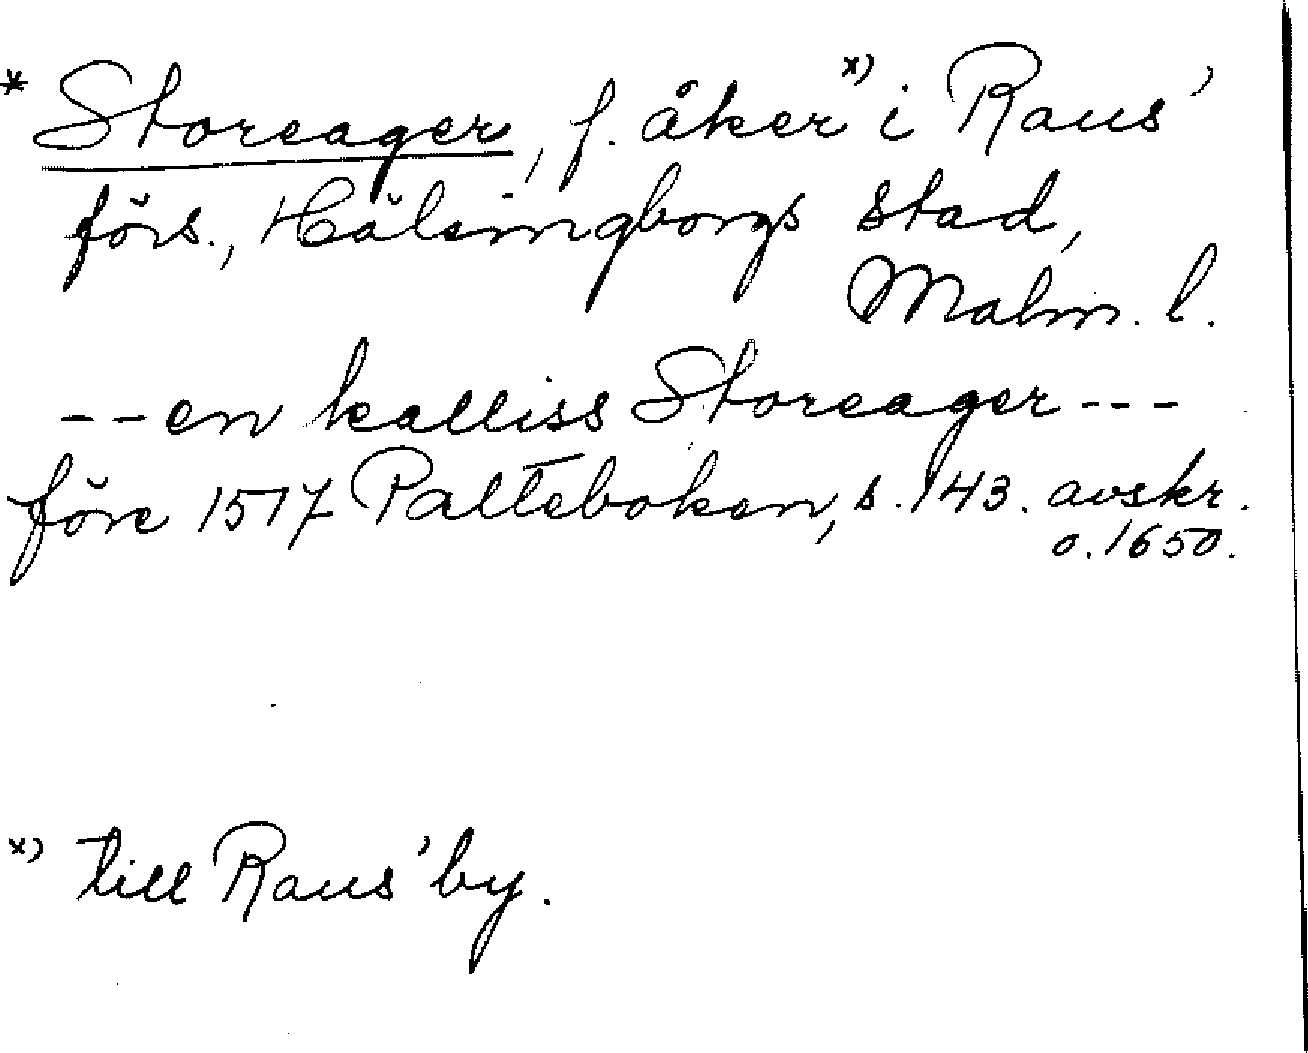 * Storeager, f. åker x) i Raus'
förs., Hälsingborgs stad,
Malm. l.
--en kalliss Storeager---
före 1517 Palteboken, s. 143. avskr.
o. 1650.
x) till Raus' by.